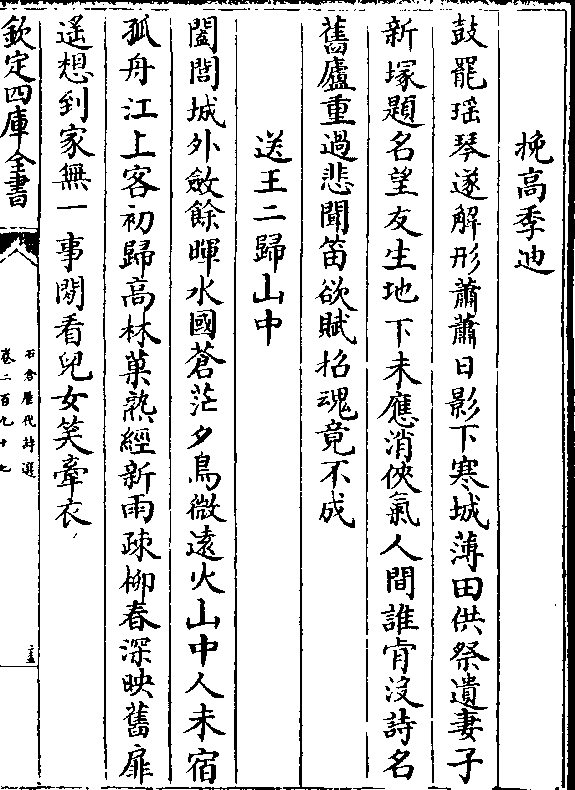 挽高季迪
鼓罷瑶琴遂解形蕭蕭日影下寒城薄田供祭遺妻子
新塚題名望友生地下未應消俠氣人間誰肯没詩名
舊廬重過悲聞笛欲賦招魂竟不成
送王二歸山中
闔閭城外斂餘暉水國蒼茫夕鳥微遠火山中人未宿
孤舟江上客初歸高林菓熟經新雨疎柳春深映舊扉
遥想到家無一事閒看兒女笑牽衣
欽定四庫全書
石倉歷代詩選
卷二百九十七